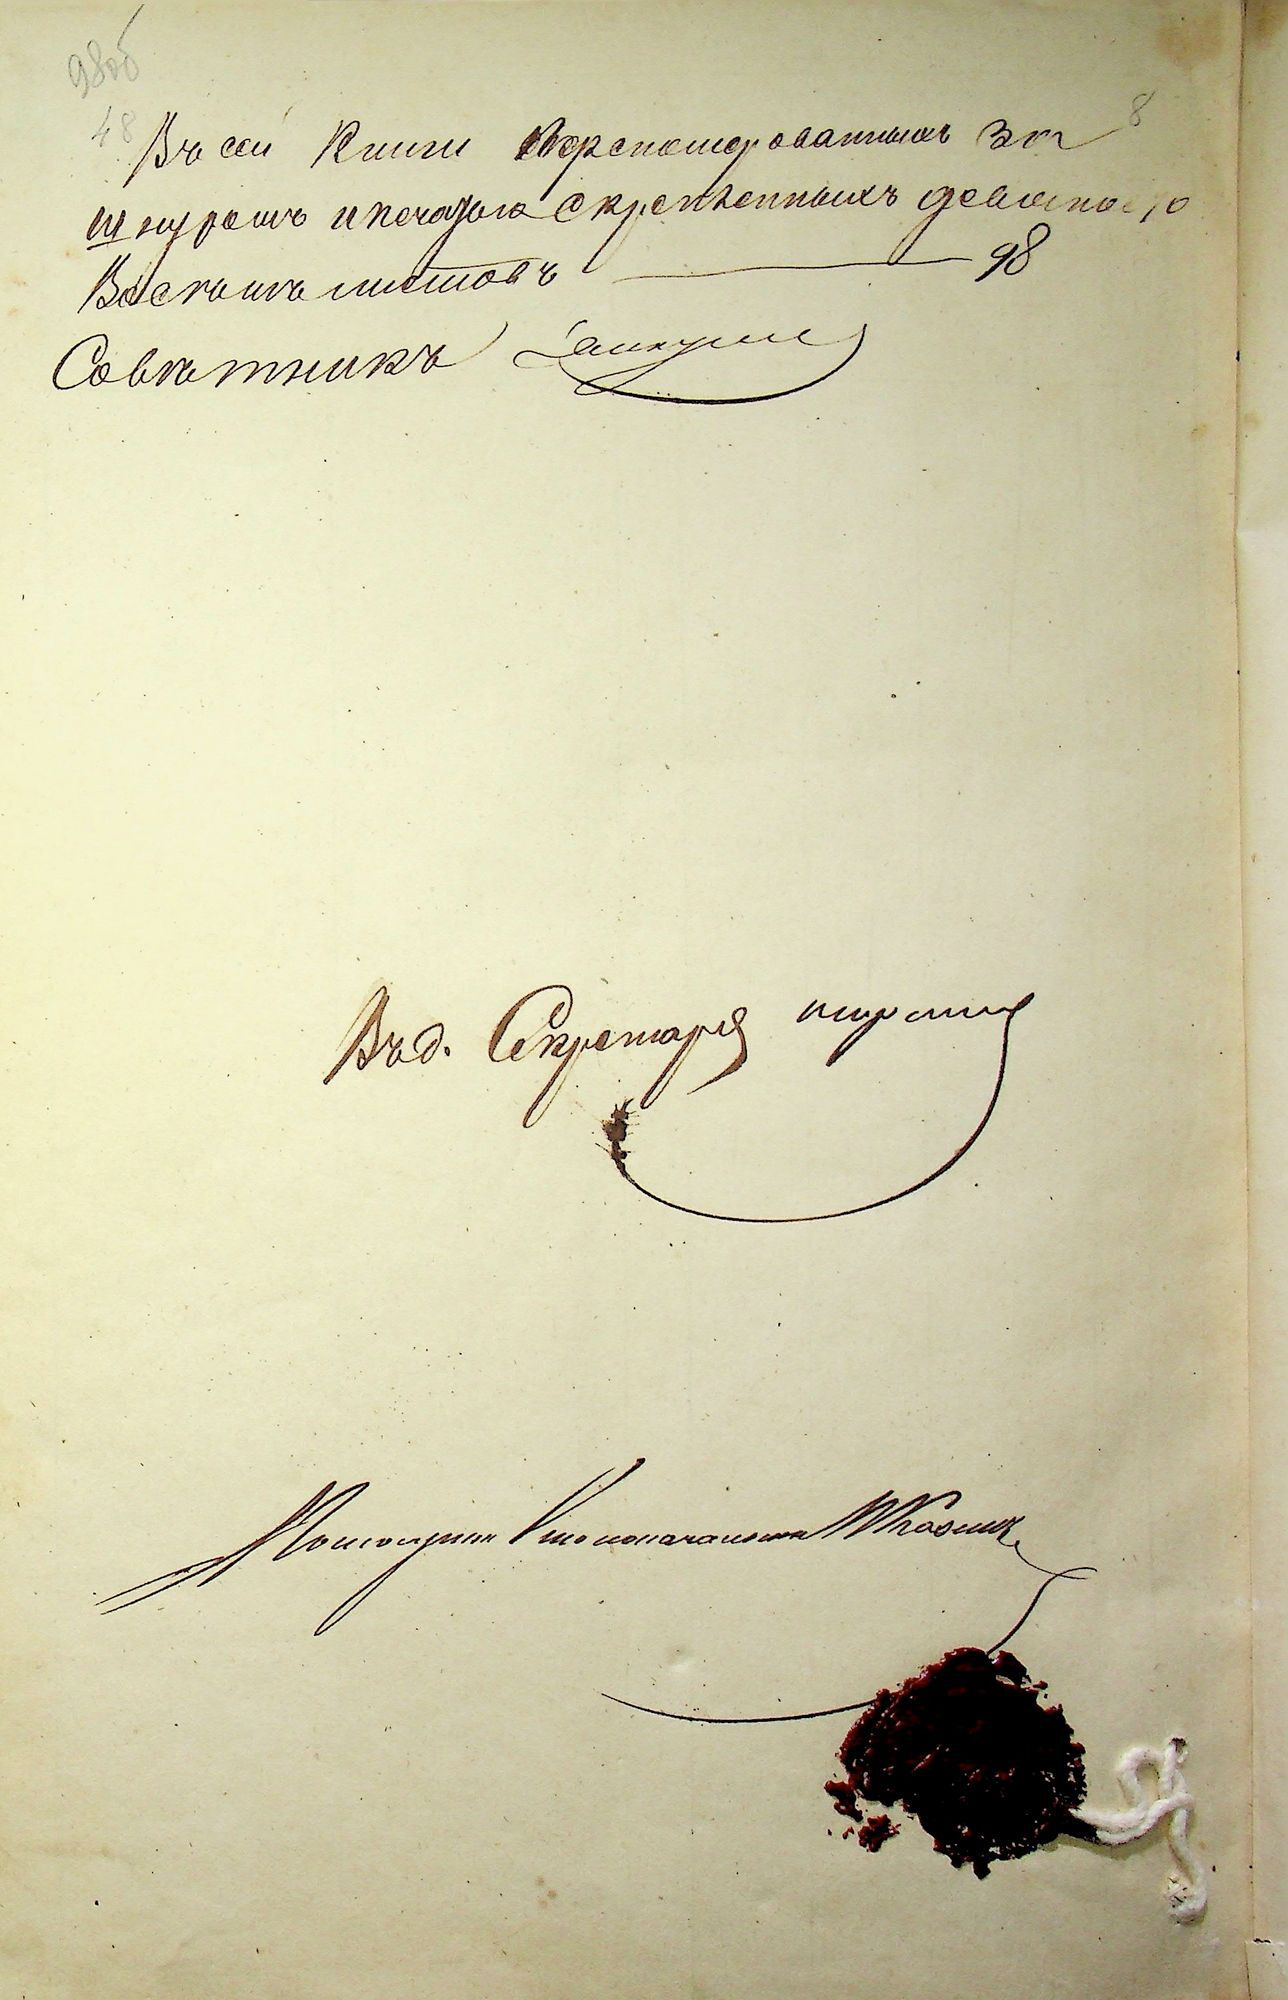 98об
48 Въ сей Книги перенумерованныхъ За 8
шнуромъ и печатью скрепленныхъ девяносто
Восемь листовъ — 98
Советникъ
Въ д. Секретаря
Помощникъ Столоначальника